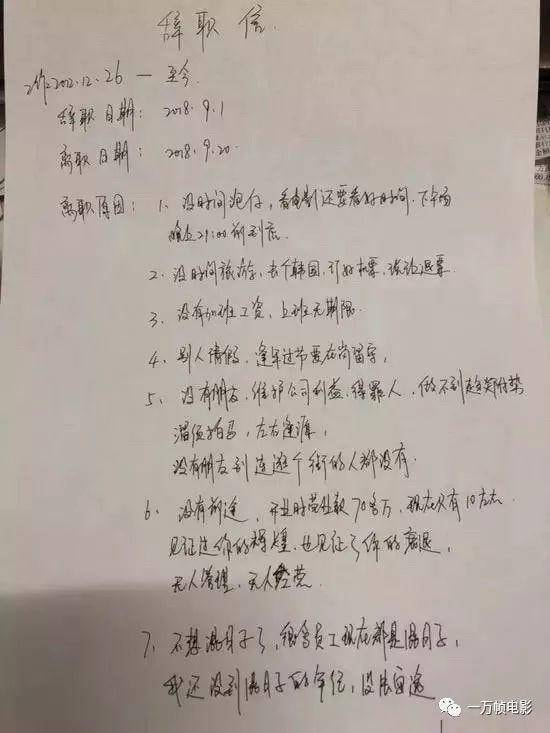 辞职信
工作2012.12.26—至今
辞职日期：2018.9.1
离职日期：2018.9.20.
离职原因：1、没时间泡仔，看电影还要看好时间，下午场
晚上21:00前到店.
2、没时间旅游，去个韩国，订好机票，谈论退票
3、没有加班工资，上班无期限
4、别人请假，逢年过节要在岗留守，
5、没有朋友，维护公司利益，得罪人，做不到趋炎附势
溜须拍马，左右逢源，
没有朋友到连逛个街的人都没有.
6、没有前途，开业时营业款70多万，现在只有10左右
见证过你的辉煌，也见证了你的衰退，
无人管理，无人经营.
7、不想混日子了，很多员工现在都是混日子，
我还没到混日子的年纪，没法留
一万帧电影